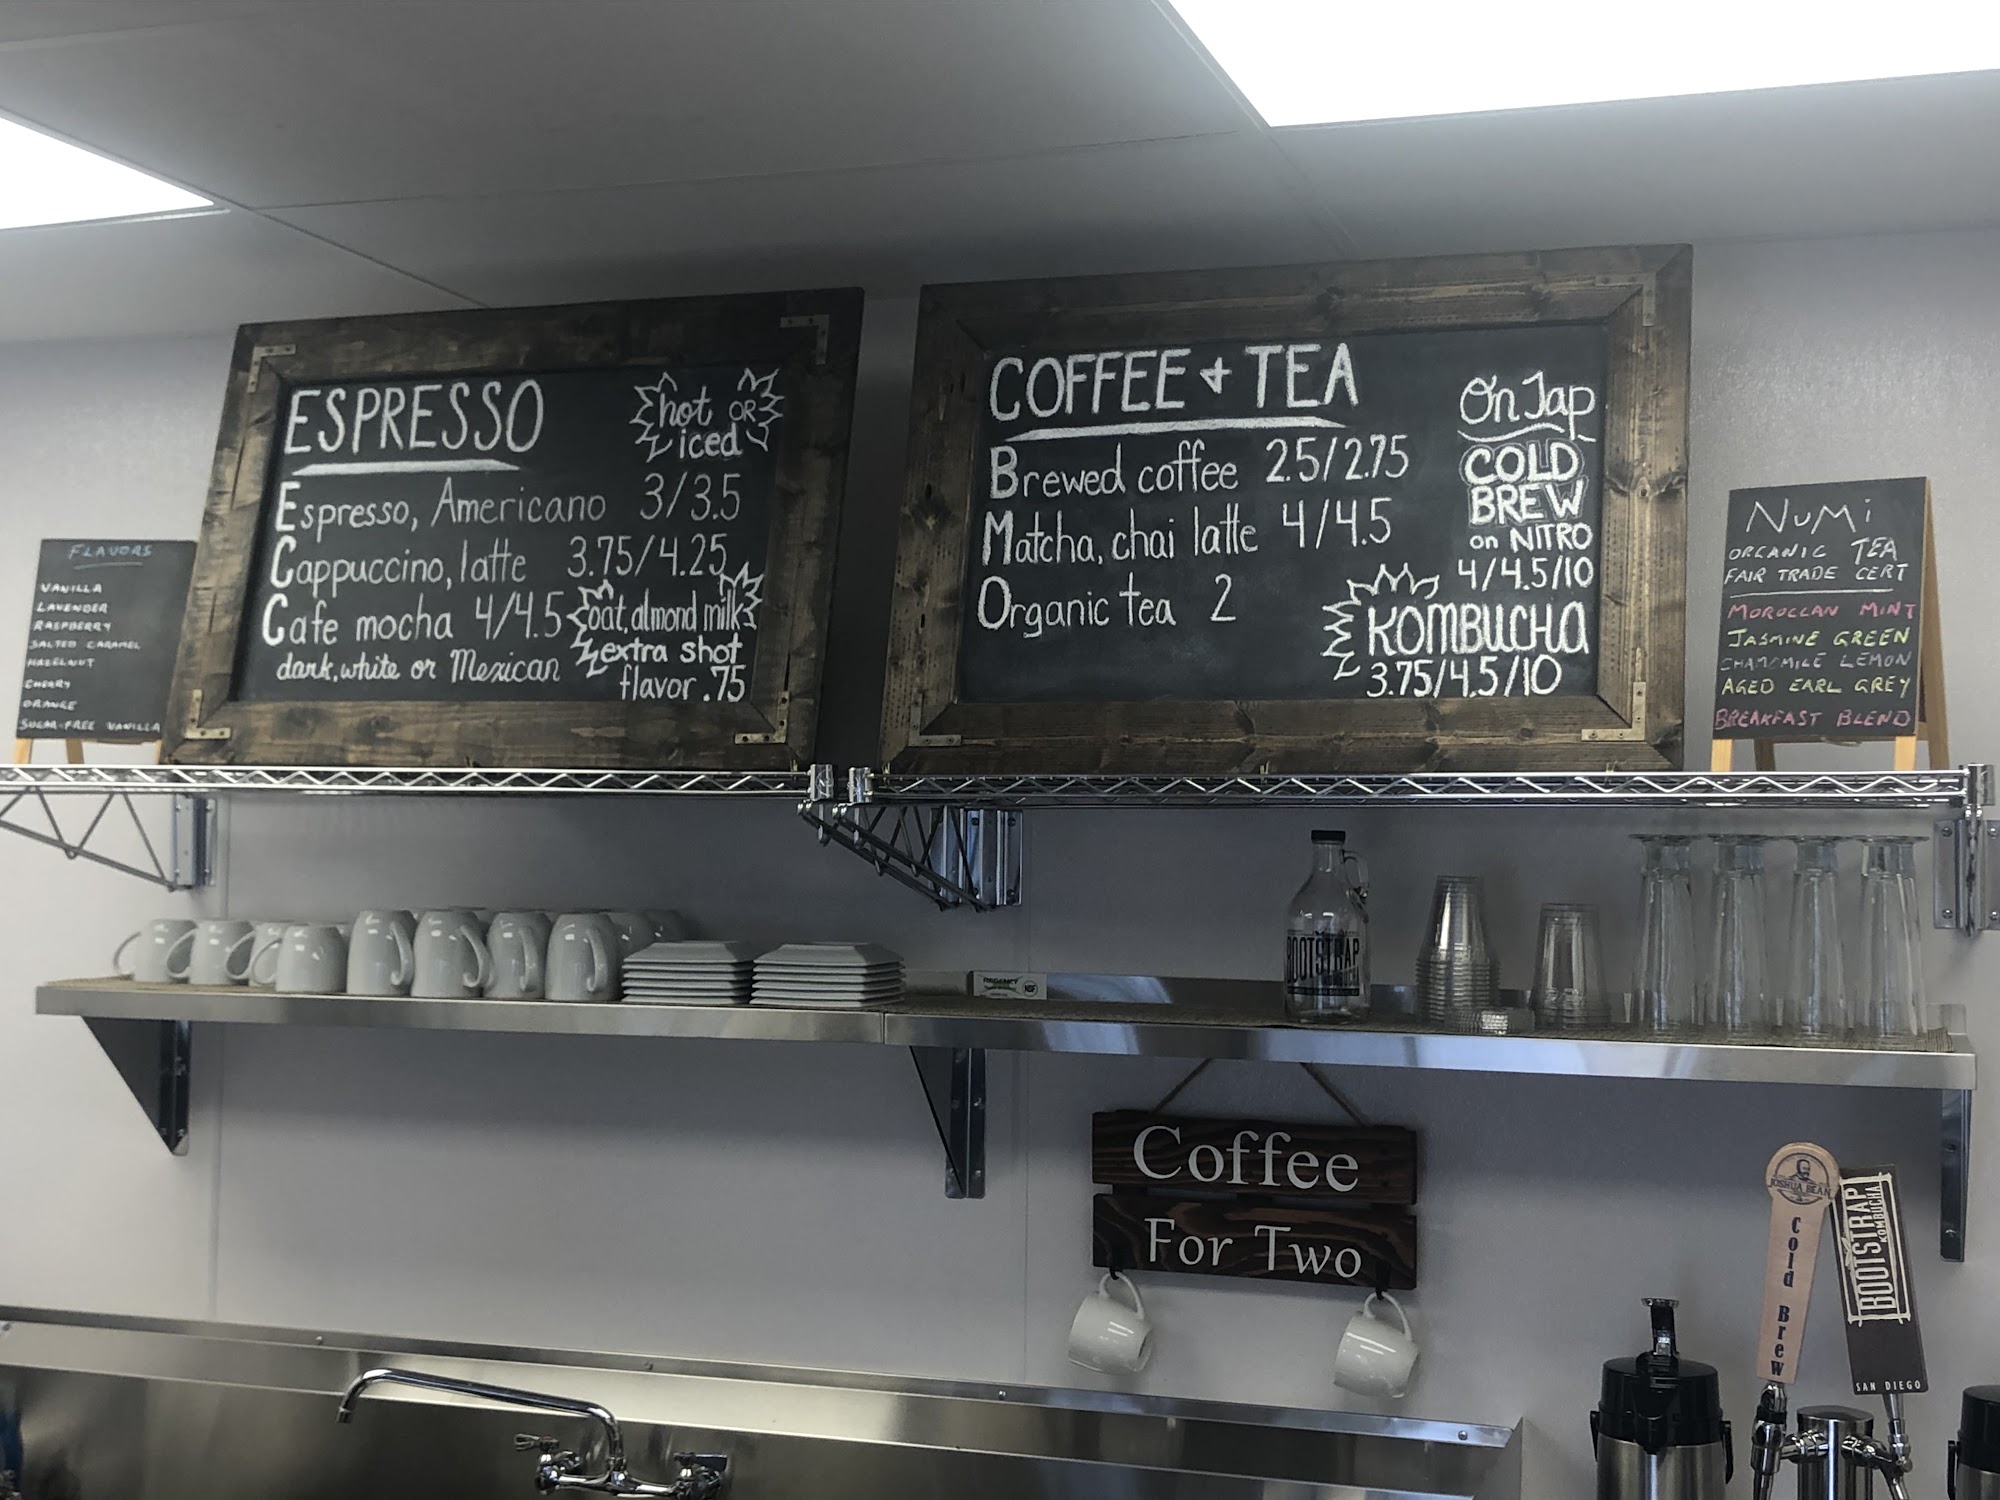 FLAVORS
VANILLA
LAVENDER
RASPBERRY
SALTED CARAMEL
HAZELNUT
CHERRY
ORANGE
SUGAR-FREE VANILLA
ESPRESSO
hot OR
iced
Espresso, Americano 3/3.5
Cappuccino, latte 3.75/4.25
Cafe mocha 4/4.5
dark, white or Mexican
oat, almond milk
extra shot
flavor .75
COFFEE + TEA
Brewed coffee 2.5/2.75
Matcha, chai latte 4/4.5
Organic tea 2
On Tap
COLD
BREW
on NITRO
4/4.5/10
KOMBUCHA
3.75/4.5/10
NUMi
ORGANIC TEA
FAIR TRADE CERT
MOROCCAN MINT
JASMINE GREEN
CHAMOMILE LEMON
AGED EARL GREY
BREAKFAST BLEND
BOOTSTRAP
KOMBUCHA
REGENCY
NSF
Coffee
For Two
JOSHUA BEAN
Cold Brew
BOOTSTRAP
KOMBUCHA
SAN DIEGO